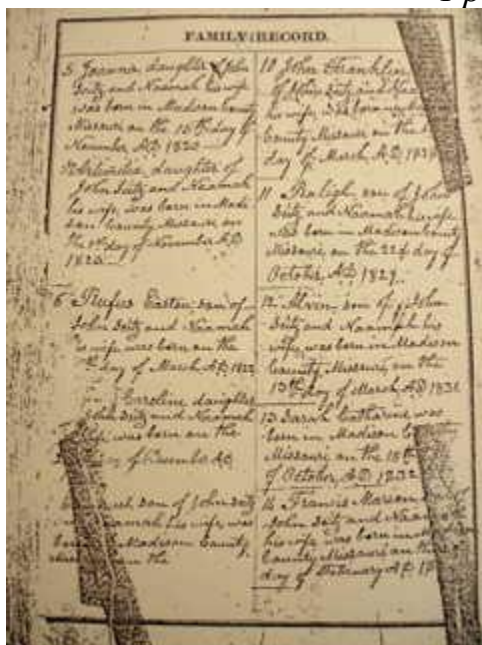 FAMILY RECORD.
5 Joanna, daughter of John
Seitz and Naamah his wife
was born in Madison County
Missouri on the 15th day of
November A.D. 1820
daughter of
John Seitz and Naamah
his wife, was born in Madi
son County Missouri on
the day of November A.D.
1820
6 Rufus Easton son of
John Seitz and Naamah
his wife was born on the
day of March A.D. 1822
Caroline daughter
John Seitz and Naamah
wife was born on the
day of December AD
son of John Seitz
Naamah his wife was
Madison County
on the
10 John Franklin
of John Seitz and
his wife, was born
County Missouri on the
day of March, A.D. 182
11 Raligh, son of John
Seitz and Naamah his wife
was born in Madison County
Missouri, on the 22d day of
October, A.D. 1829.
12 Alvin son of John
Seitz and Naamah his
wife, was born in Madison
County Missouri, on the
13th day of March A.D. 1831
13 Sarah Catharine was
born in Madison
Missouri on the 15th
of October, A.D. 1832
14 Francis Marion
John Seitz and
his wife was born in
County Missouri on the
day of February A.D.